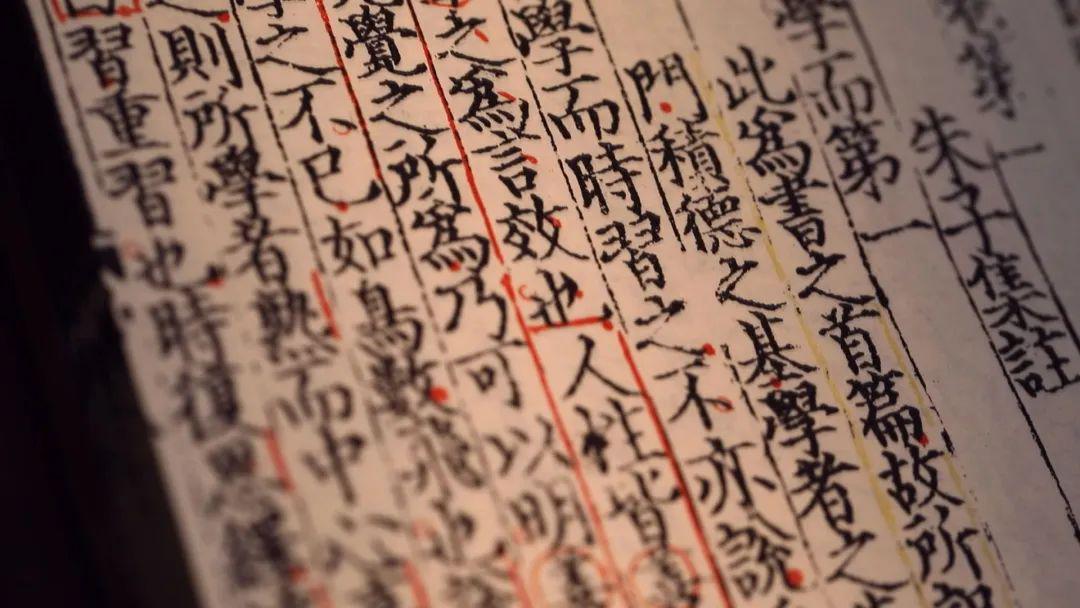 卷第一
朱子集註
學而第一
此爲書之首篇故所
門積德之基學者之
學而時習之不亦說
之爲言效也人性皆善
覺之所爲乃可以明善
學之不已如鳥數飛也
則所學者熟而中心
習重習也時復思繹